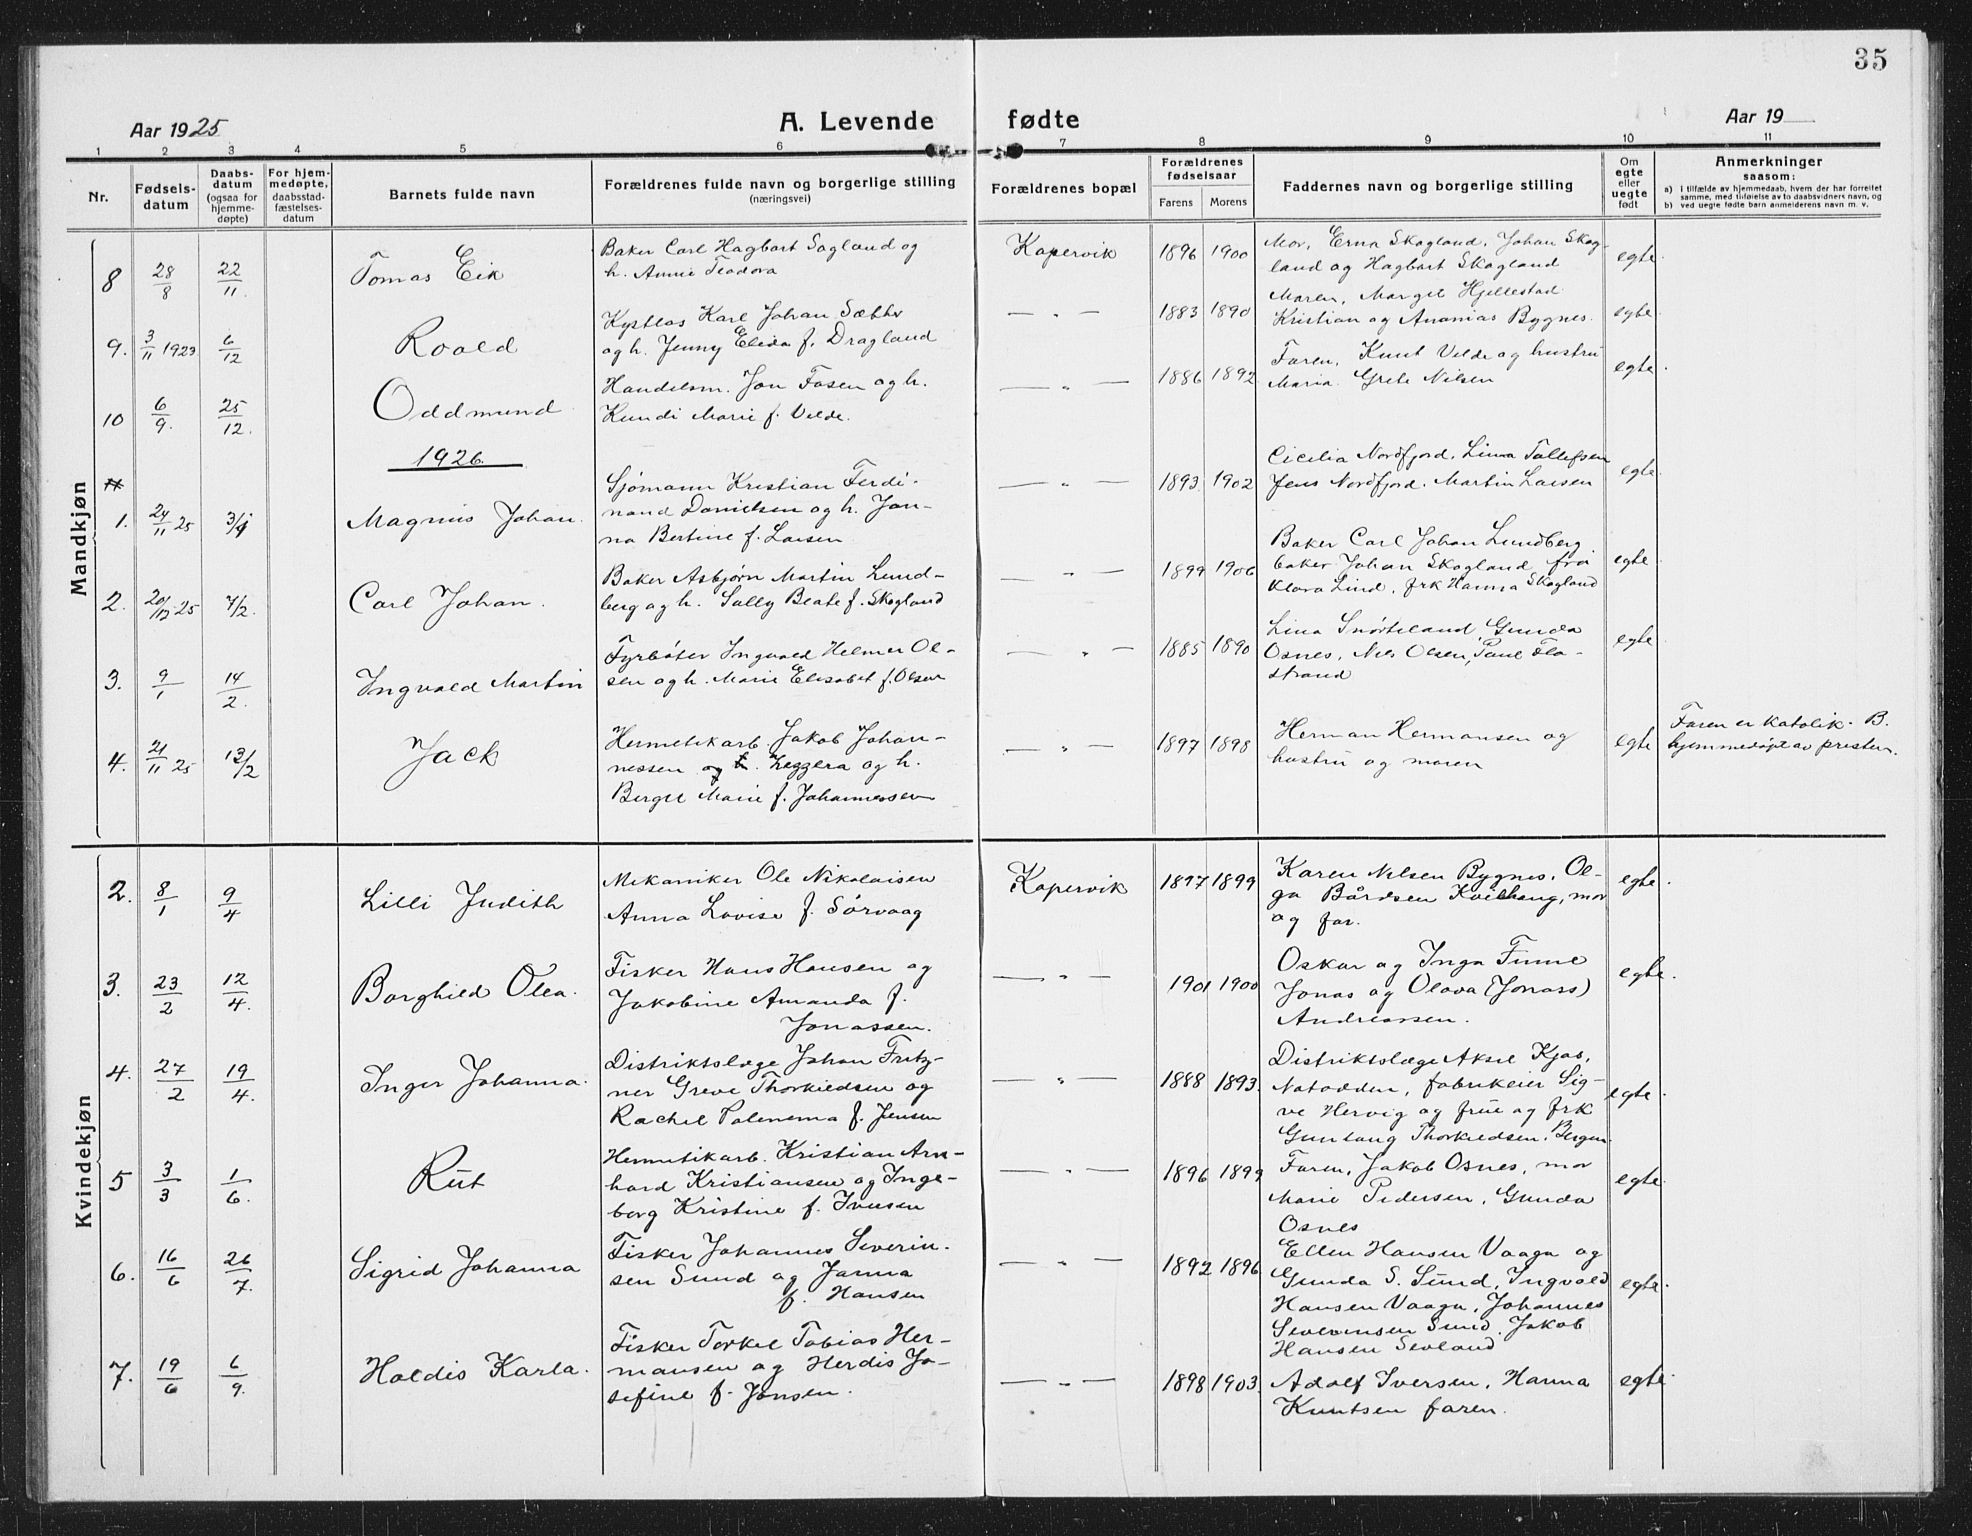 35
Aar 1925
A. Levende fødte
Aar 19
1 2 3 4 5 6 7 8 9 10 11
Nr.
Fødsels-
datum
Daabs-
datum
(ogsaa for
hjemme-
døpte)
For hjem-
medøpte,
daabsstad-
fæstelses-
datum
Barnets fulde navn
Forældrenes fulde navn og borgerlige stilling
(næringsvei)
Forældrenes bopæl
Forældrenes
fødselsaar
Farens Morens
Faddernes navn og borgerlige stilling
Om
egte
eller
uegte
født
Anmerkninger
saasom:
a) i tilfælde av hjemmedaab, hvem der har forrettet
samme, med tilføielse av to daabsvidners navn, og
b) ved uegte fødte barn anmelderens navn m. v.
Mandkjøn
8 28/8 22/11. Tomas Eik
Baker Carl Hagbart Sagland og
h. Annie Teodora
Kopervik 1896 1900
Mor, Erna Skogland, Johan Skog-
land og Hagbart Skogland
egte
9. 3/11 1923 6/12 Roald
Karl Johan Sætter
og h. Jenny Elida f. Dragland
— " — 1883 1890
Maren, Margit Hjellestad
Kristian og Ananias Bygnes.
egte
10 6/9. 25/12. Oddmund
Handelsm. Jon Fosen og h.
Kundi Marie f. Velde.
— " — 1886 1892
Faren, Knut Velde og hustru
Maria. Grete Nilsen
egte
1926.
1. 24/11 25 3/1 Magnus Johan.
Sjømann Kristian Ferdi-
nand Danielsen og h. Jon-
na Bertine f. Larsen
— " — 1893 1902
Cicilia Nordfjord, Linna Tollefsen
Jens Nordfjord. Martin Larsen
egte
2. 20/12 25 7/2. Carl Johan.
Baker Asbjørn Martin Lund-
berg og h. Sally Beate f. Skogland
— " — 1899 1906
Baker Carl Johan Lundberg
baker Johan Skogland fru
Klara Lind, frk Hanna Skogland
egte
3. 9/1 14/2. Ingvald Martin
Fyrbøter Ingvald Helmer Ol-
sen og h. Marie Elisabet f. Olsen
— " — 1885 1890
Lina Snørteland, Gunda
Osnes, Nils Olsen, Paul Flo-
strand
egte
4. 21/11 25 13/2 Jack
Hermetikarb. Jakob Johan-
nessen og h. Zeggera og h.
Berget Marie f. Johannessen
— " — 1897 1898
Herman Hermansen og
hustru og moren
egte
Faren er katolik. B.
hjemmedøpt av presten.
Kvindekjøn
2. 8/1 9/4 Lilli Judith
Mekaniker Ole Nikolaisen
Anna Lovise f. Sørvaag
Kopervik 1897 1899
Karen Nilsen Bygnes, Ol-
ga Bårdsen Kvilhaug, mor
og far.
egte.
3. 23/2 12/4. Borghild Olea.
Fisker Hans Hansen og
Jakobine Amanda f.
Jonassen.
— " — 1901 1900
Oskar og Inga Finne
Jonas og Olava (Jonass)
Andreassen.
egte.
4. 27/2 19/4. Inger Johanna.
Distriktslæge Johan Fritz-
ner Greve Thorkildsen og
Rachel Palenema f. Jensen
— " — 1888 1893.
Distriktslæge Aksel Kjos,
Notodden, fabrikeier Sig-
ve Hervig og frue og frk
Gunlaug Thorkildsen, Bergen.
egte.
5 3/3 1/6. Rut
Hermetikarb. Kristian Arn-
hard Kristiansen og Inge-
borg Kristine f. Iversen
— " — 1896 1899
Faren, Jakob Osnes, mor
Marie Pedersen, Gunda
Osnes
egte.
6. 16/6 26/7. Sigrid Johanna
Fisker Johannes Severin-
sen Sund og Janna
f. Hansen
— " — 1892 1896
Ellen Hansen Vaaga og
Gunda S. Sund, Ingvald
Hansen Vaaga, Johannes
Severinsen Sund, Jakob
Hansen Sevland
egte.
7. 19/6 6/9. Haldis Karla.
Fisker Torkel Tobias Her-
mansen og Herdis Jo-
sefine f. Jonsen.
— " — 1898 1903.
Adolf Iversen, Hanna
Knutsen faren.
egte.